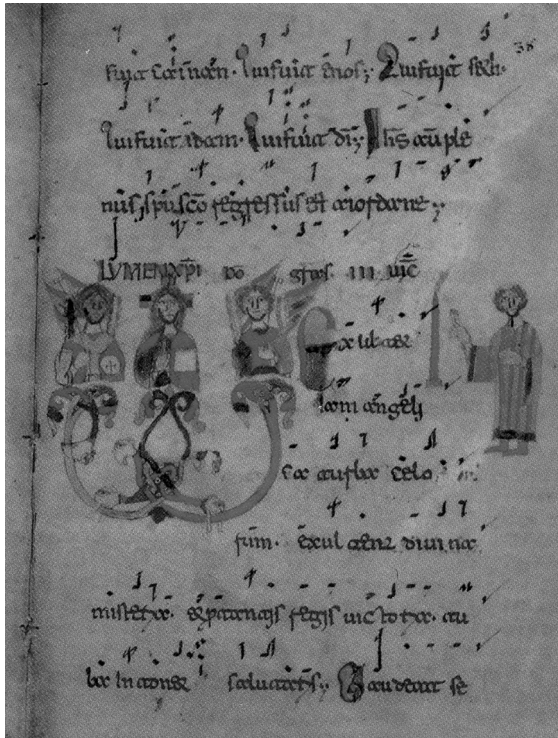 fuit cainan. Qui fuit enos; Qui fuit seth. 38
Qui fuit adam. Qui fuit di; Ihs au ple
nus spu sco regressus est a iordane;
LVMEN XPI DO gras III VIC
Exultet
iam angeli
ca turba celo
rum. exultent diuina
misteria. et tanti regis uictoria. tu
ba intonet salutaris; Gaudeat se